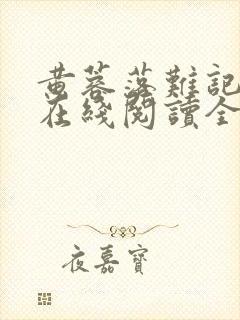 黄蓉落難記
在綫閱讀全
夜嘉寶